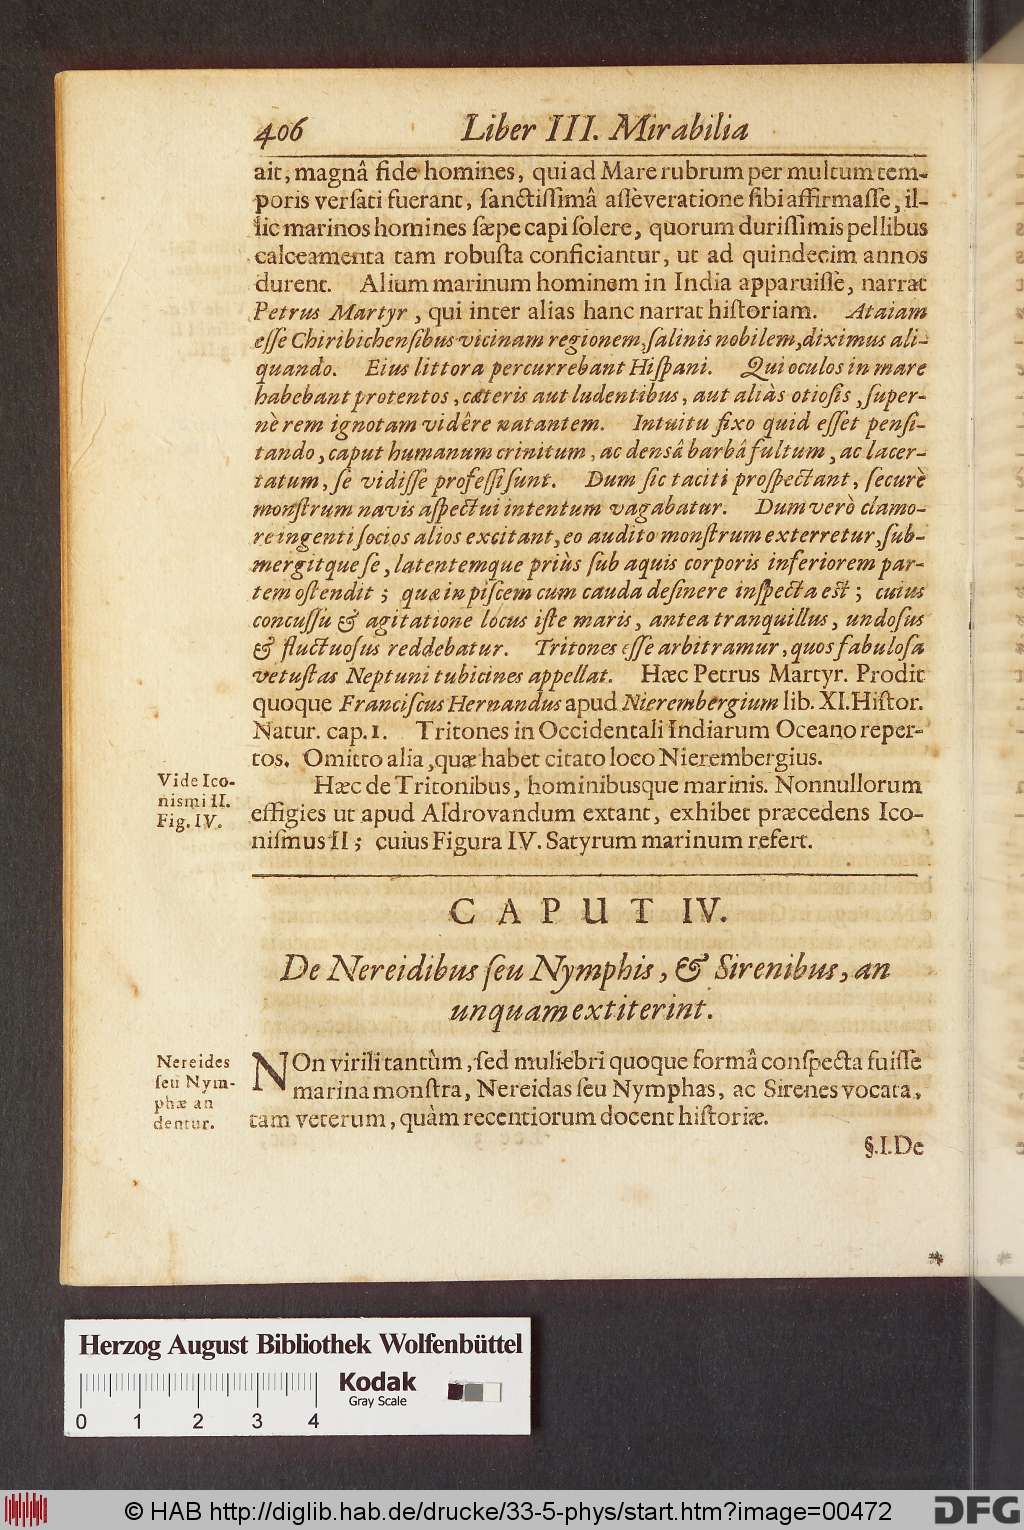 406 Liber III. Mirabilia
ait, magnâ fide homines, qui ad Mare rubrum per multum tem-
poris verſati fuerant, ſanctiſſimâ aſſeveratione ſibi affirmaſſe, il-
lic marinos homines ſæpe capi ſolere, quorum duriſſimis pellibus
calceamenta tam robuſta conficiantur, ut ad quindecim annos
durent. Alium marinum hominem in India apparuiſſe, narrat
Petrus Martyr, qui inter alias hanc narrat hiſtoriam. Ataiam
eſſe Chiribichenſibus vicinam regionem, ſalinis nobilem, diximus ali-
quando. Eius littora percurrebant Hiſpani. Qui oculos in mare
habebant protentos, cæteris aut ludentibus, aut aliàs otioſis, ſuper-
nè rem ignotam vidêre natantem. Intuitu fixo quid eſſet penſi-
tando, caput humanum crinitum, ac densâ barbâ fultum, ac lacer-
tatum, ſe vidiſſe profeſſi ſunt. Dum ſic taciti proſpectant, ſecurè
monſtrum navis aſpectui intentum vagabatur. Dum verò clamo-
re ingenti ſocios alios excitant, eo audito monſtrum exterretur, ſub-
mergitque ſe, latentemque priùs ſub aquis corporis inferiorem par-
tem oſtendit; quæ in piſcem cum cauda deſinere inſpecta eſt; cuius
concuſſu & agitatione locus iſte maris, antea tranquillus, undoſus
& fluctuoſus reddebatur. Tritones eſſe arbitramur, quos fabuloſa
vetuſtas Neptuni tubicines appellat. Hæc Petrus Martyr. Prodit
quoque Franciſcus Hernandus apud Nierembergium lib. XI. Hiſtor.
Natur. cap. 1. Tritones in Occidentali Indiarum Oceano reper-
tos. Omitto alia, quæ habet citato loco Nierembergius.
Vide Ico-
niſmi II.
Fig. IV.
Hæc de Tritonibus, hominibusque marinis. Nonnullorum
effigies ut apud Aldrovandum extant, exhibet præcedens Ico-
niſmus II; cuius Figura IV. Satyrum marinum refert.
CAPUT IV.
De Nereidibus ſeu Nymphis, & Sirenibus, an
unquam extiterint.
Nereides
ſeu Nym-
phæ an
dentur.
NOn virili tantùm, ſed muliebri quoque formâ conſpecta fuiſſe
marina monſtra, Nereidas ſeu Nymphas, ac Sirenes vocata,
tam veterum, quàm recentiorum docent hiſtoriæ.
§. I. De
Herzog August Bibliothek Wolfenbüttel
Kodak
Gray Scale
0 1 2 3 4
© HAB http://diglib.hab.de/drucke/33-5-phys/start.htm?image=00472
DFG